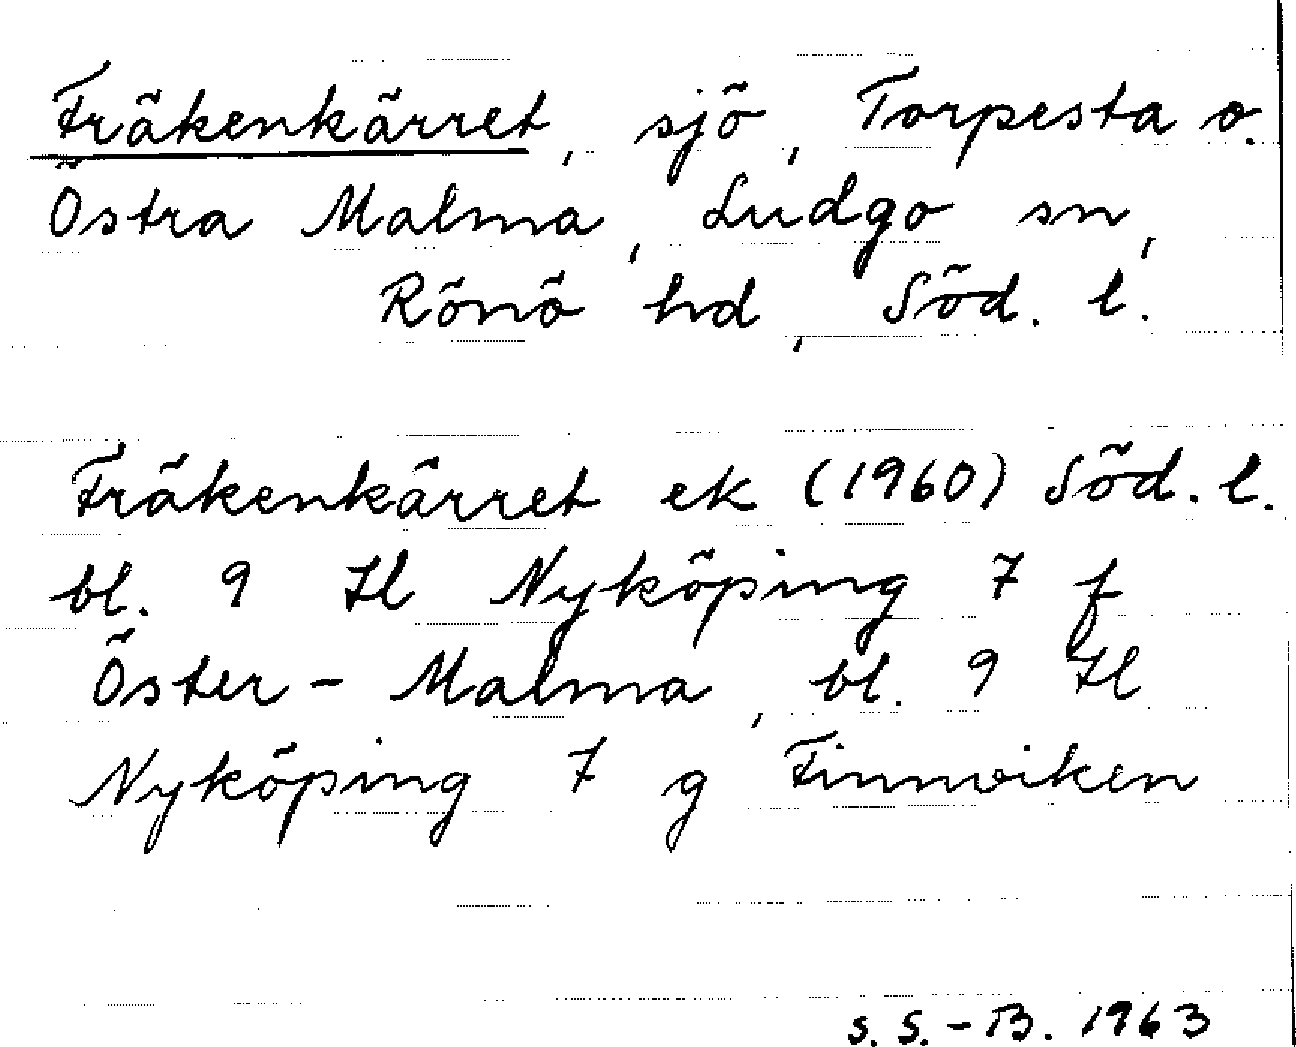 Fräkenkärret, sjö, Torpesta o.
Östra Malma, Ludgo sn,
Rönö hd, Söd. l.
Fräkenkärret ek (1960) Söd. l.
bl. 9 H Nyköping 7 f
Öster-Malma, bl. 9 H
Nyköping 7 g Finnviken
S. S.-B. 1963